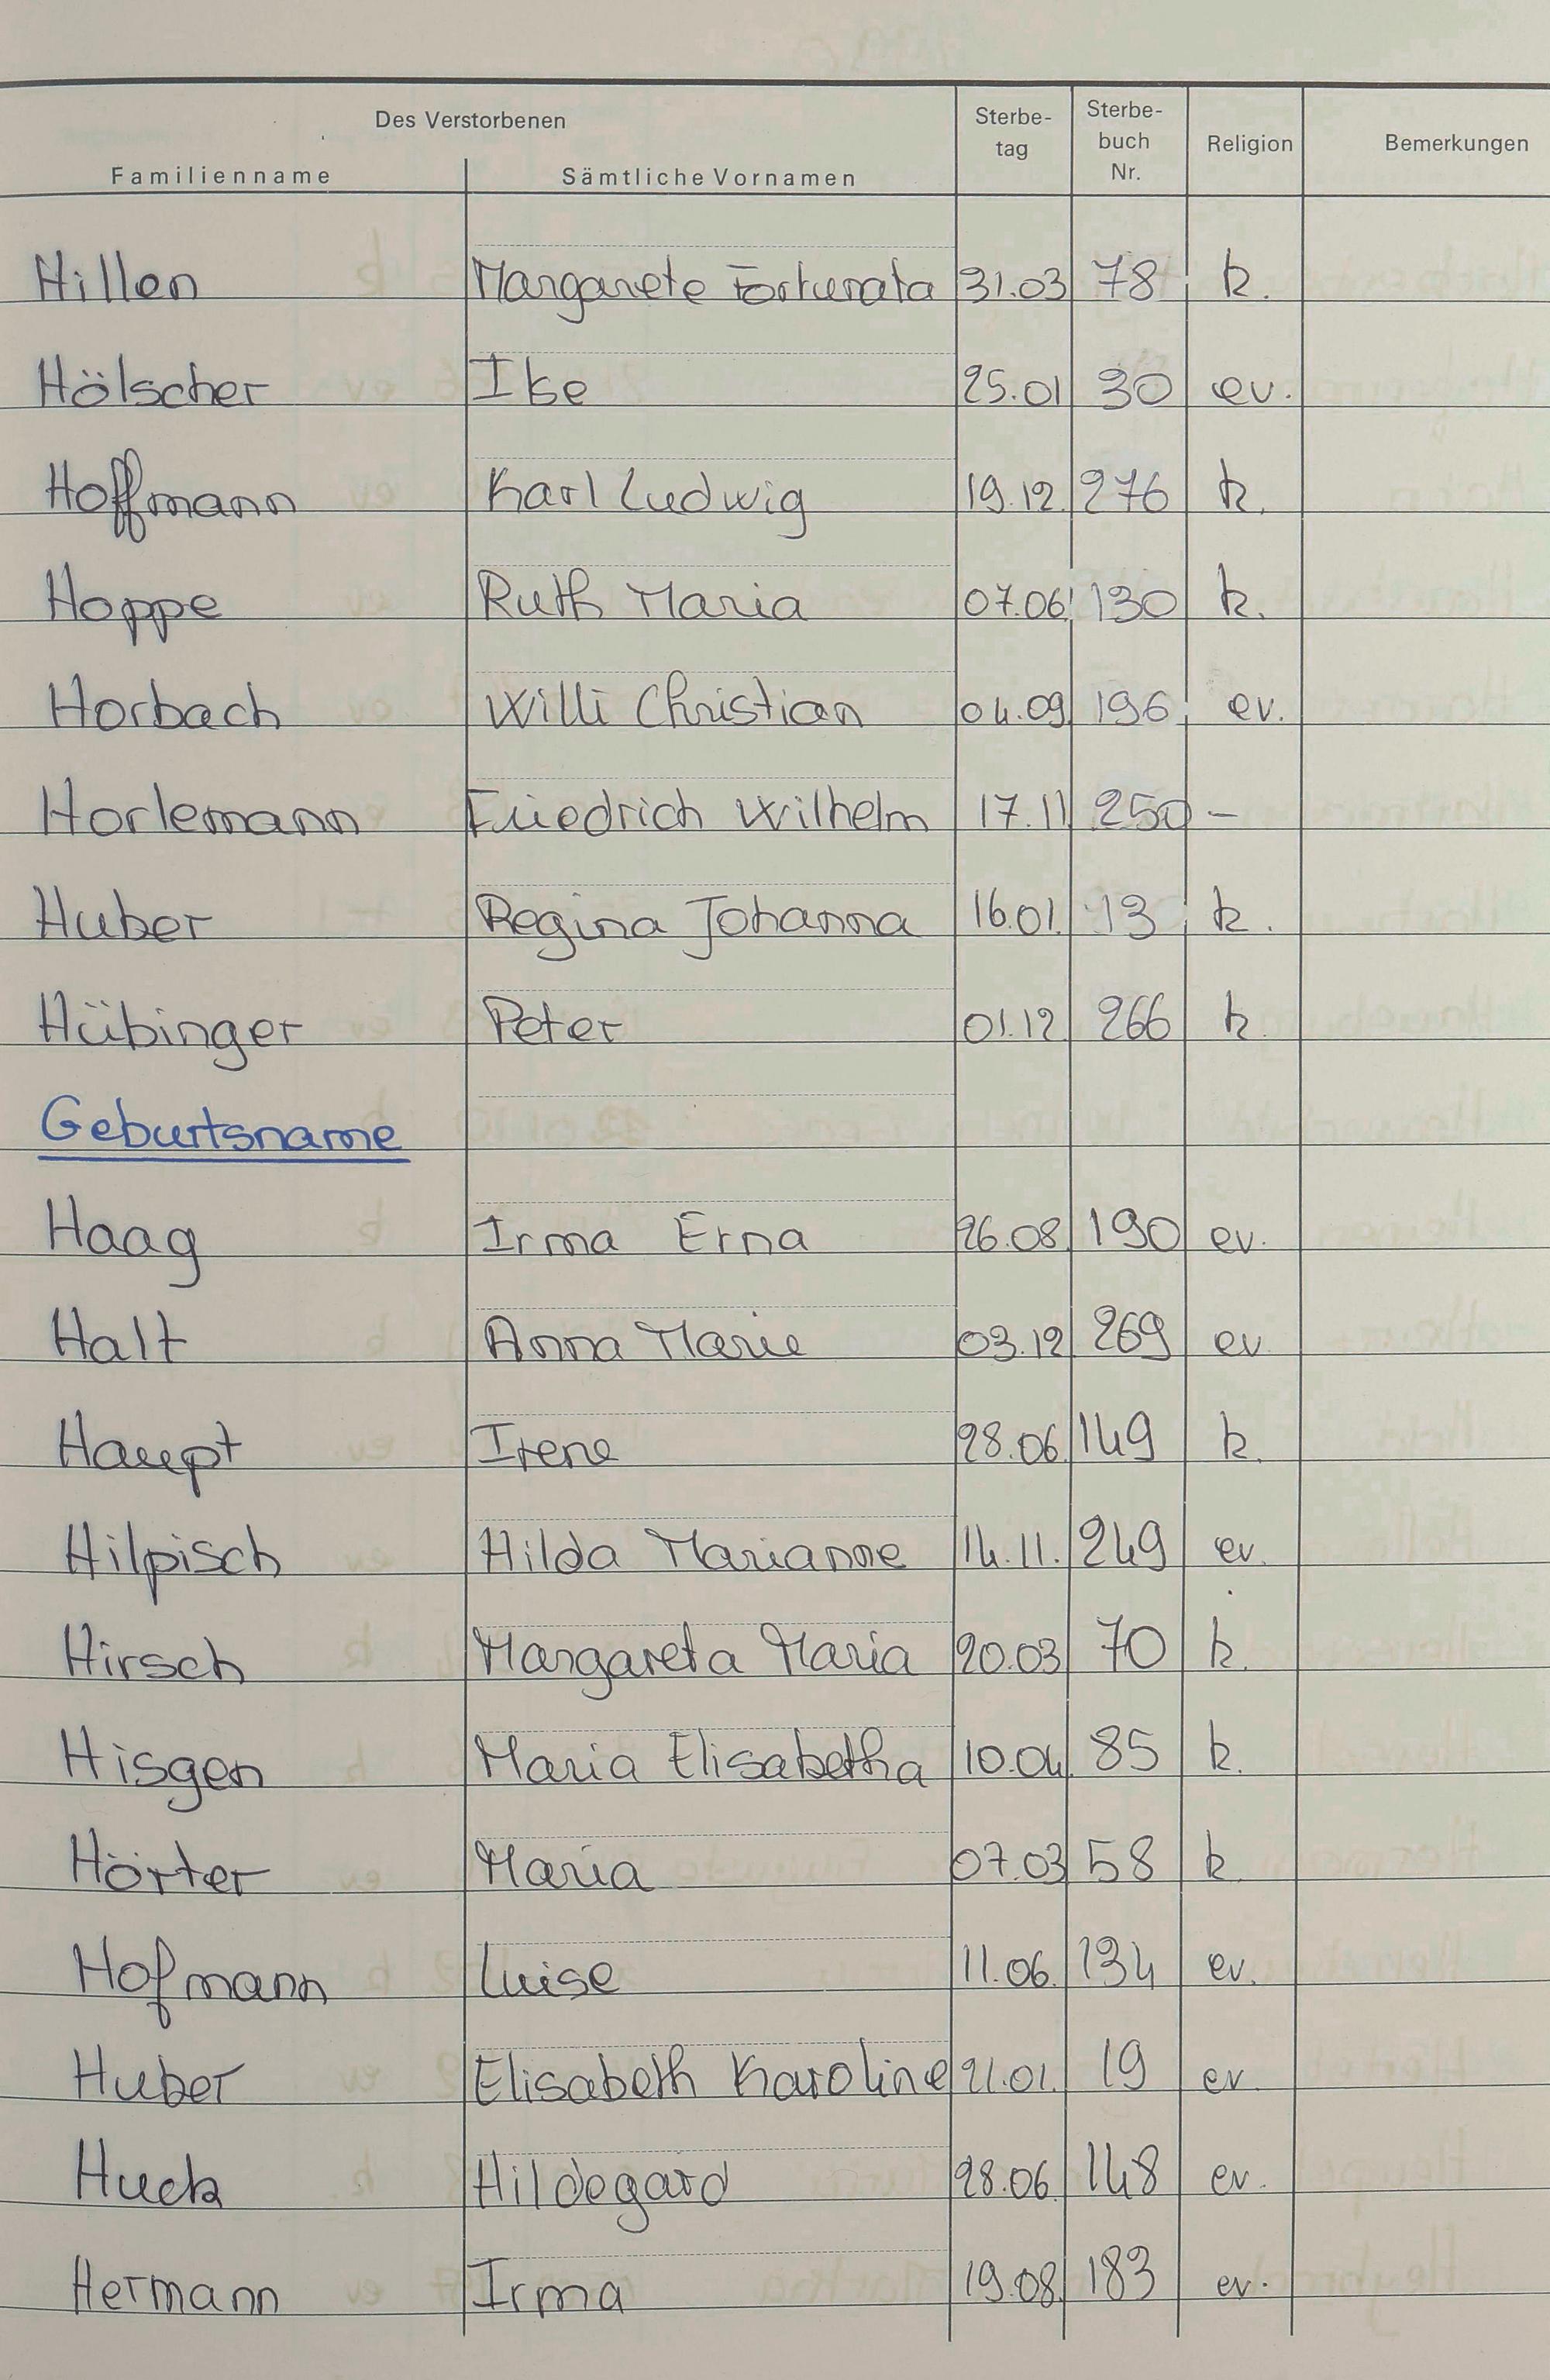 Des Verstorbenen
Familienname Sämtliche Vornamen Sterbe-tag Sterbe-buch Nr. Religion Bemerkungen
Hillen Margarete Fortunata 31.03 78 k.
Hölscher Ilse 25.01 30 ev.
Hoffmann Karl Ludwig 19.12. 276 k.
Hoppe Ruth Maria 07.06. 130 k.
Horbach Willi Christian 04.09. 196 ev.
Horlemann Friedrich Wilhelm 17.11 250 –
Huber Regina Johanna 16.01. 13 k.
Hübinger Peter 01.12. 266 k.
Geburtsname
Haag Irma Erna 26.08. 190 ev.
Halt Anna Marie 03.12 269 ev.
Haupt Irene 28.06. 149 k.
Hilpisch Hilda Marianne 14.11. 249 ev.
Hirsch Margareta Maria 20.03 70 k.
Hisgen Maria Elisabetha 10.04. 85 k.
Hörter Maria 07.03 58 k.
Hofmann Luise 11.06. 134 ev.
Huber Elisabeth Karoline 21.01. 19 ev.
Huck Hildegard 28.06. 148 ev.
Hermann Irma 19.08. 183 ev.